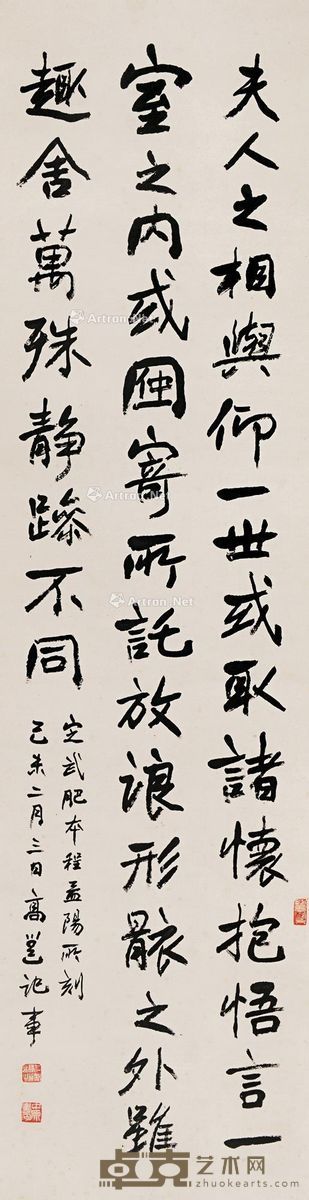 夫人之相與仰一世或取諸懷抱悟言一
室之內或因寄所託放浪形骸之外雖
趣舍萬殊靜躁不同
定武肥本程孟陽所刻
己未二月三日高邕記事
Artron.Net
Artron.Net
Artron.Net
卓克艺术网
www.zhuokearts.com